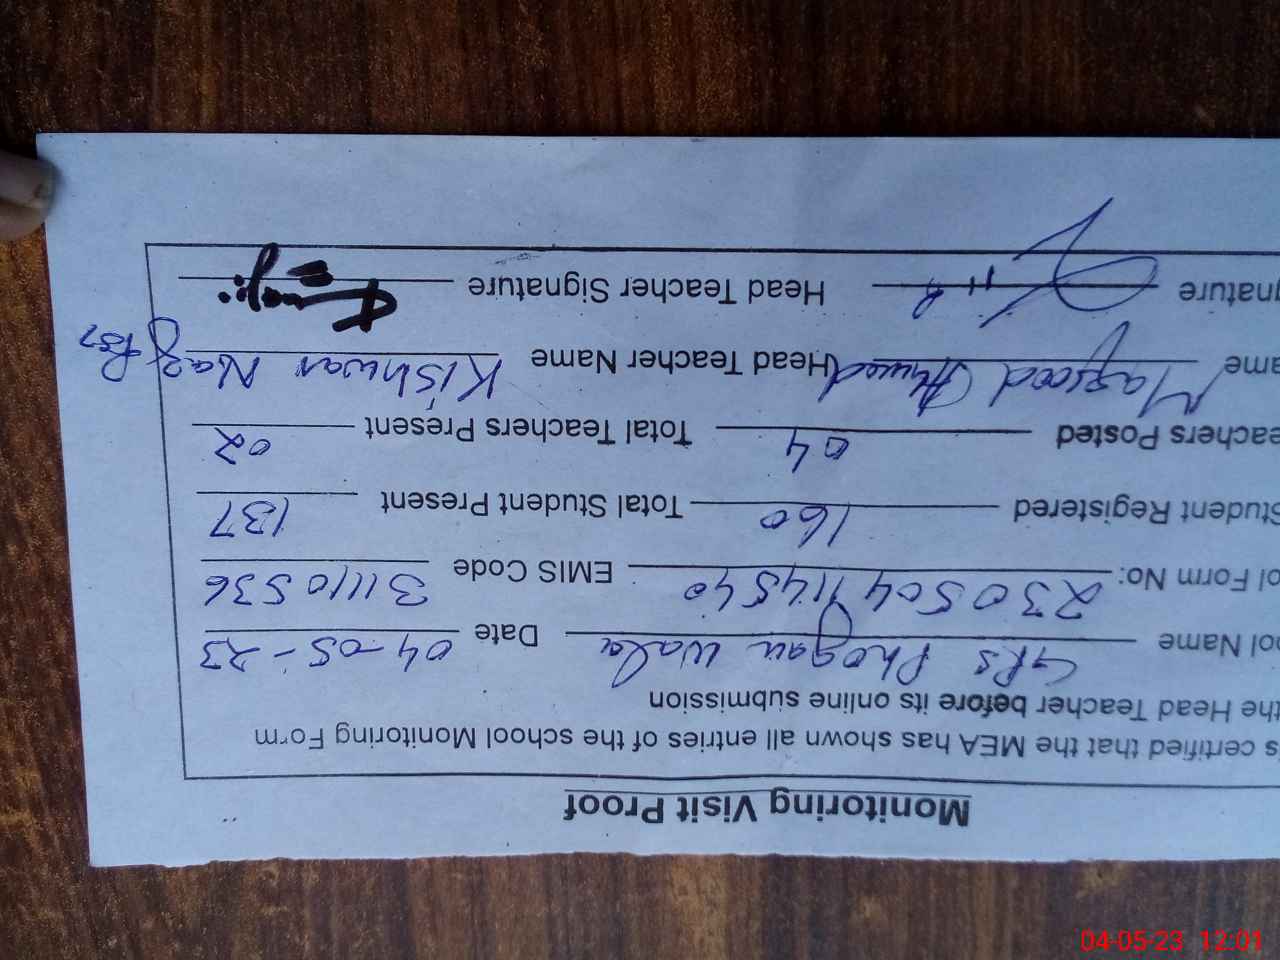 Monitoring Visit Proof
s certified that the MEA has shown all entries of the school Monitoring Form
the Head Teacher before its online submission
ool Name GPS Phogan wala Date 04-05-23
ol Form No: 230504114540 EMIS Code 31110536
Student Registered 160 Total Student Present 137
eachers Posted 04 Total Teachers Present 02
ame Maqsood Ahmed Head Teacher Name Kishwar Naz
gnature Head Teacher Signature
04-05-23 12:01